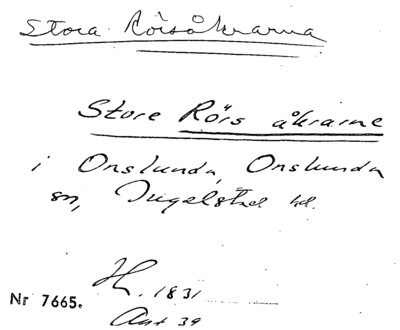 Stora Rörsåkrarna
Store Rörs åkrarne
i Onslunda, Onslunda
sn, Ingelstad hd.
H. 1831
Nr 7665.
Akt 39